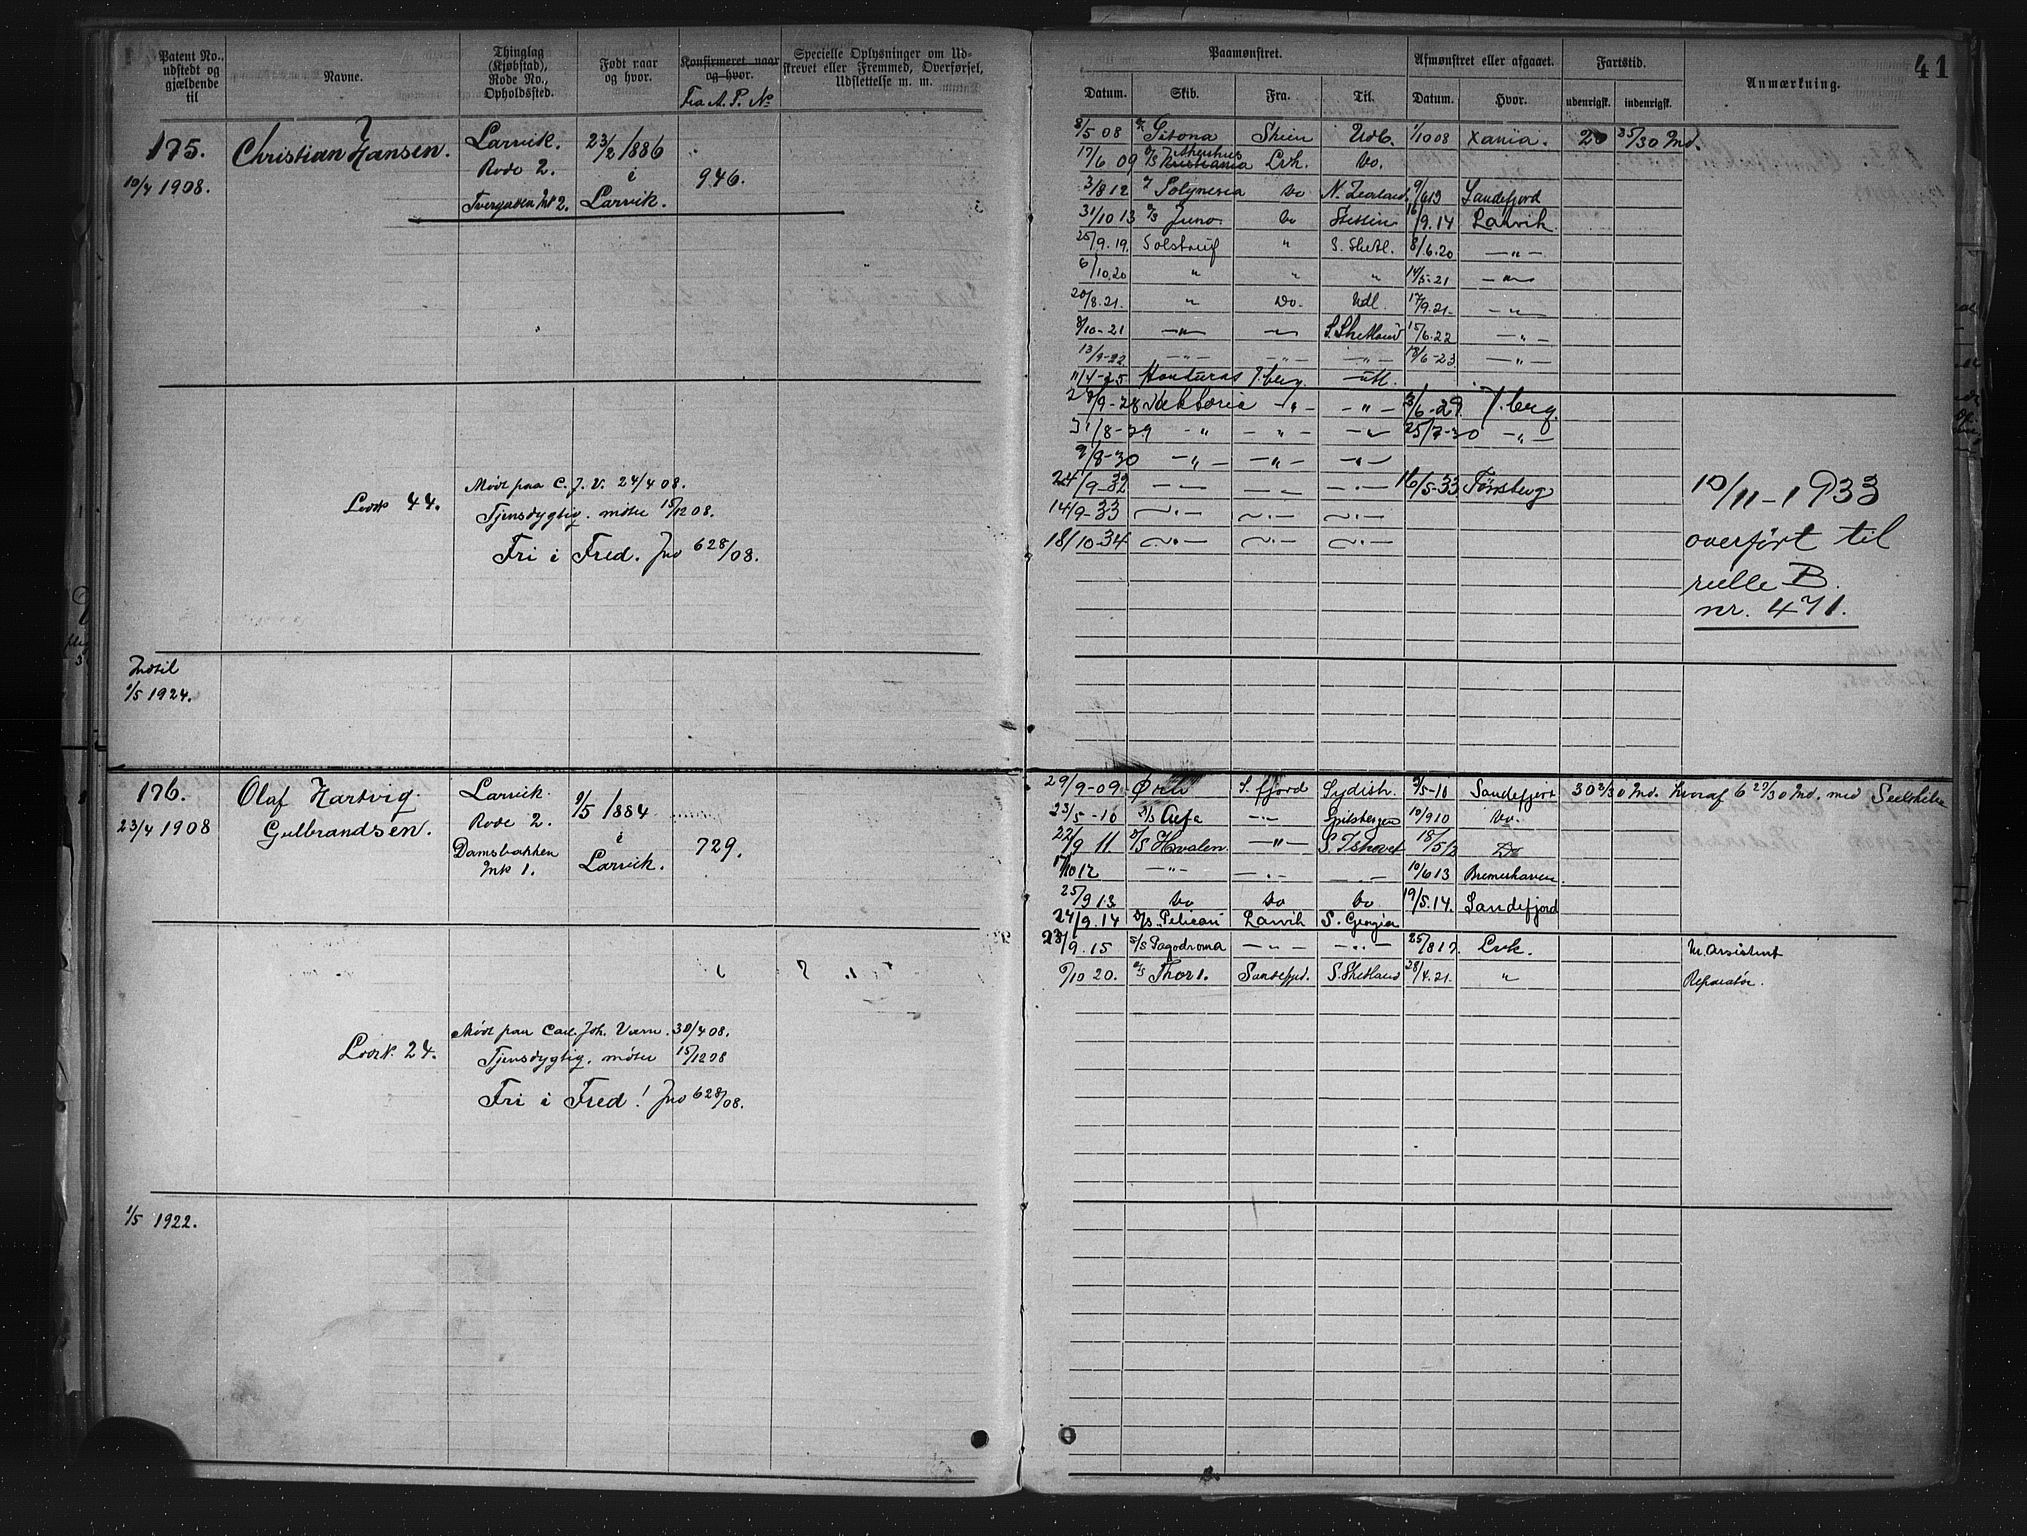 Patent No., udstedt og gjældende til
Navne.
Thinglag (Kjøbstad), Rode No., Opholdssted.
Født naar og hvor.
Konfirmeret naar og hvor.
Fra A. P. No
Specielle Oplysninger om Udskrevet eller Fremmed, Overførsel, Udslettelse m. m.
175.
10/4 1908.
Christian Hansen.
Larvik.
Rode 2.
23/2 1886
i
Larvik.
946.
Lvvk 44.
Mødt paa C. J. V. 24/4 08.
Tjensdygtig. møter 15/12 08.
Fri i Fred. Jno 628/08.
Indtil
1/5 1924.
176.
23/4 1908
Olaf Hartvig
Gulbrandsen.
Larvik.
Rode 2.
Damsbakken
Mk 1.
9/5 1884
i
Larvik.
729.
Lvvk. 24.
Mødt paa Carl. Joh. Værn. 30/4 08.
Tjensdygtig. møter 15/12 08
Fri i Fred! Jno 628/08.
1/5 1922.
41
Paamønstret.
Afmønstret eller afgaaet.
Fartstid.
Anmærkning.
Datum.
Skib.
Fra.
Til.
Datum.
Hvor.
udenrigsk.
indenrigsk.
8/5 08 Sitona Skien Udb. 1/10 08 Xania. 20 25/30 Md.
17/6 09 Lvk. Do.
3/8 12 Polynesia Do N. Zealand. 9/6 13 Sandefjord
31/10 13 D/S Juno. Do Stettin 16/9. 14 Larvik
25/9. 19. Solstreif " S. Shetl. 8/6. 20 — " —
6/10. 20 " " " 14/5-21 — " —
20/8. 21. " Do. Udl 17/9. 21. — " —
8/10-21 — " — — " — S. Shetland 15/6. 22 — " —
13/9-22 — " — — " — — " — 18/6-23 — " —
11/4-25 Honduras T.berg. — utl.
28/9-28 — " — — " — 3/6-29 T.berg.
31/8-29 — " — — " — — " — 25/7-30 — " —
9/8-30 — " — — " — — " —
24/9-32 — " — — " — — " — 16/5-33 Tønsberg
14/9-33 — " — — " — — " —
18/10-34 — " — — " — — " —
10/11-1933
overført til
rulle B.
nr. 471.
29/9-09 Ørn S. fjord Sydish. 9/5-10 Sandefjord 30 2/30 Md. hvoraf 6 29/30 Md. med
23/5-10 D/S — " — Spitsbergen 10/9 10 Do.
22/9 11. D/S Hvalen — " — S. Ishavet 18/5 12 Do
17/10 12 — " — — " — — " — 10/6 13 Bremerhaven
25/9 13 Do Do Do 19/5. 14. Sandefjord
24/9. 14 D/S. Pelican Larvik S. Georgia
23/9. 15 S/S Pagodroma — " — — " — 25/8 17. Lvk. M. Assistent
9/10 20. D/S Thor 1. Sandefjd. S. Shetland 28/4. 21. " Reparatør.